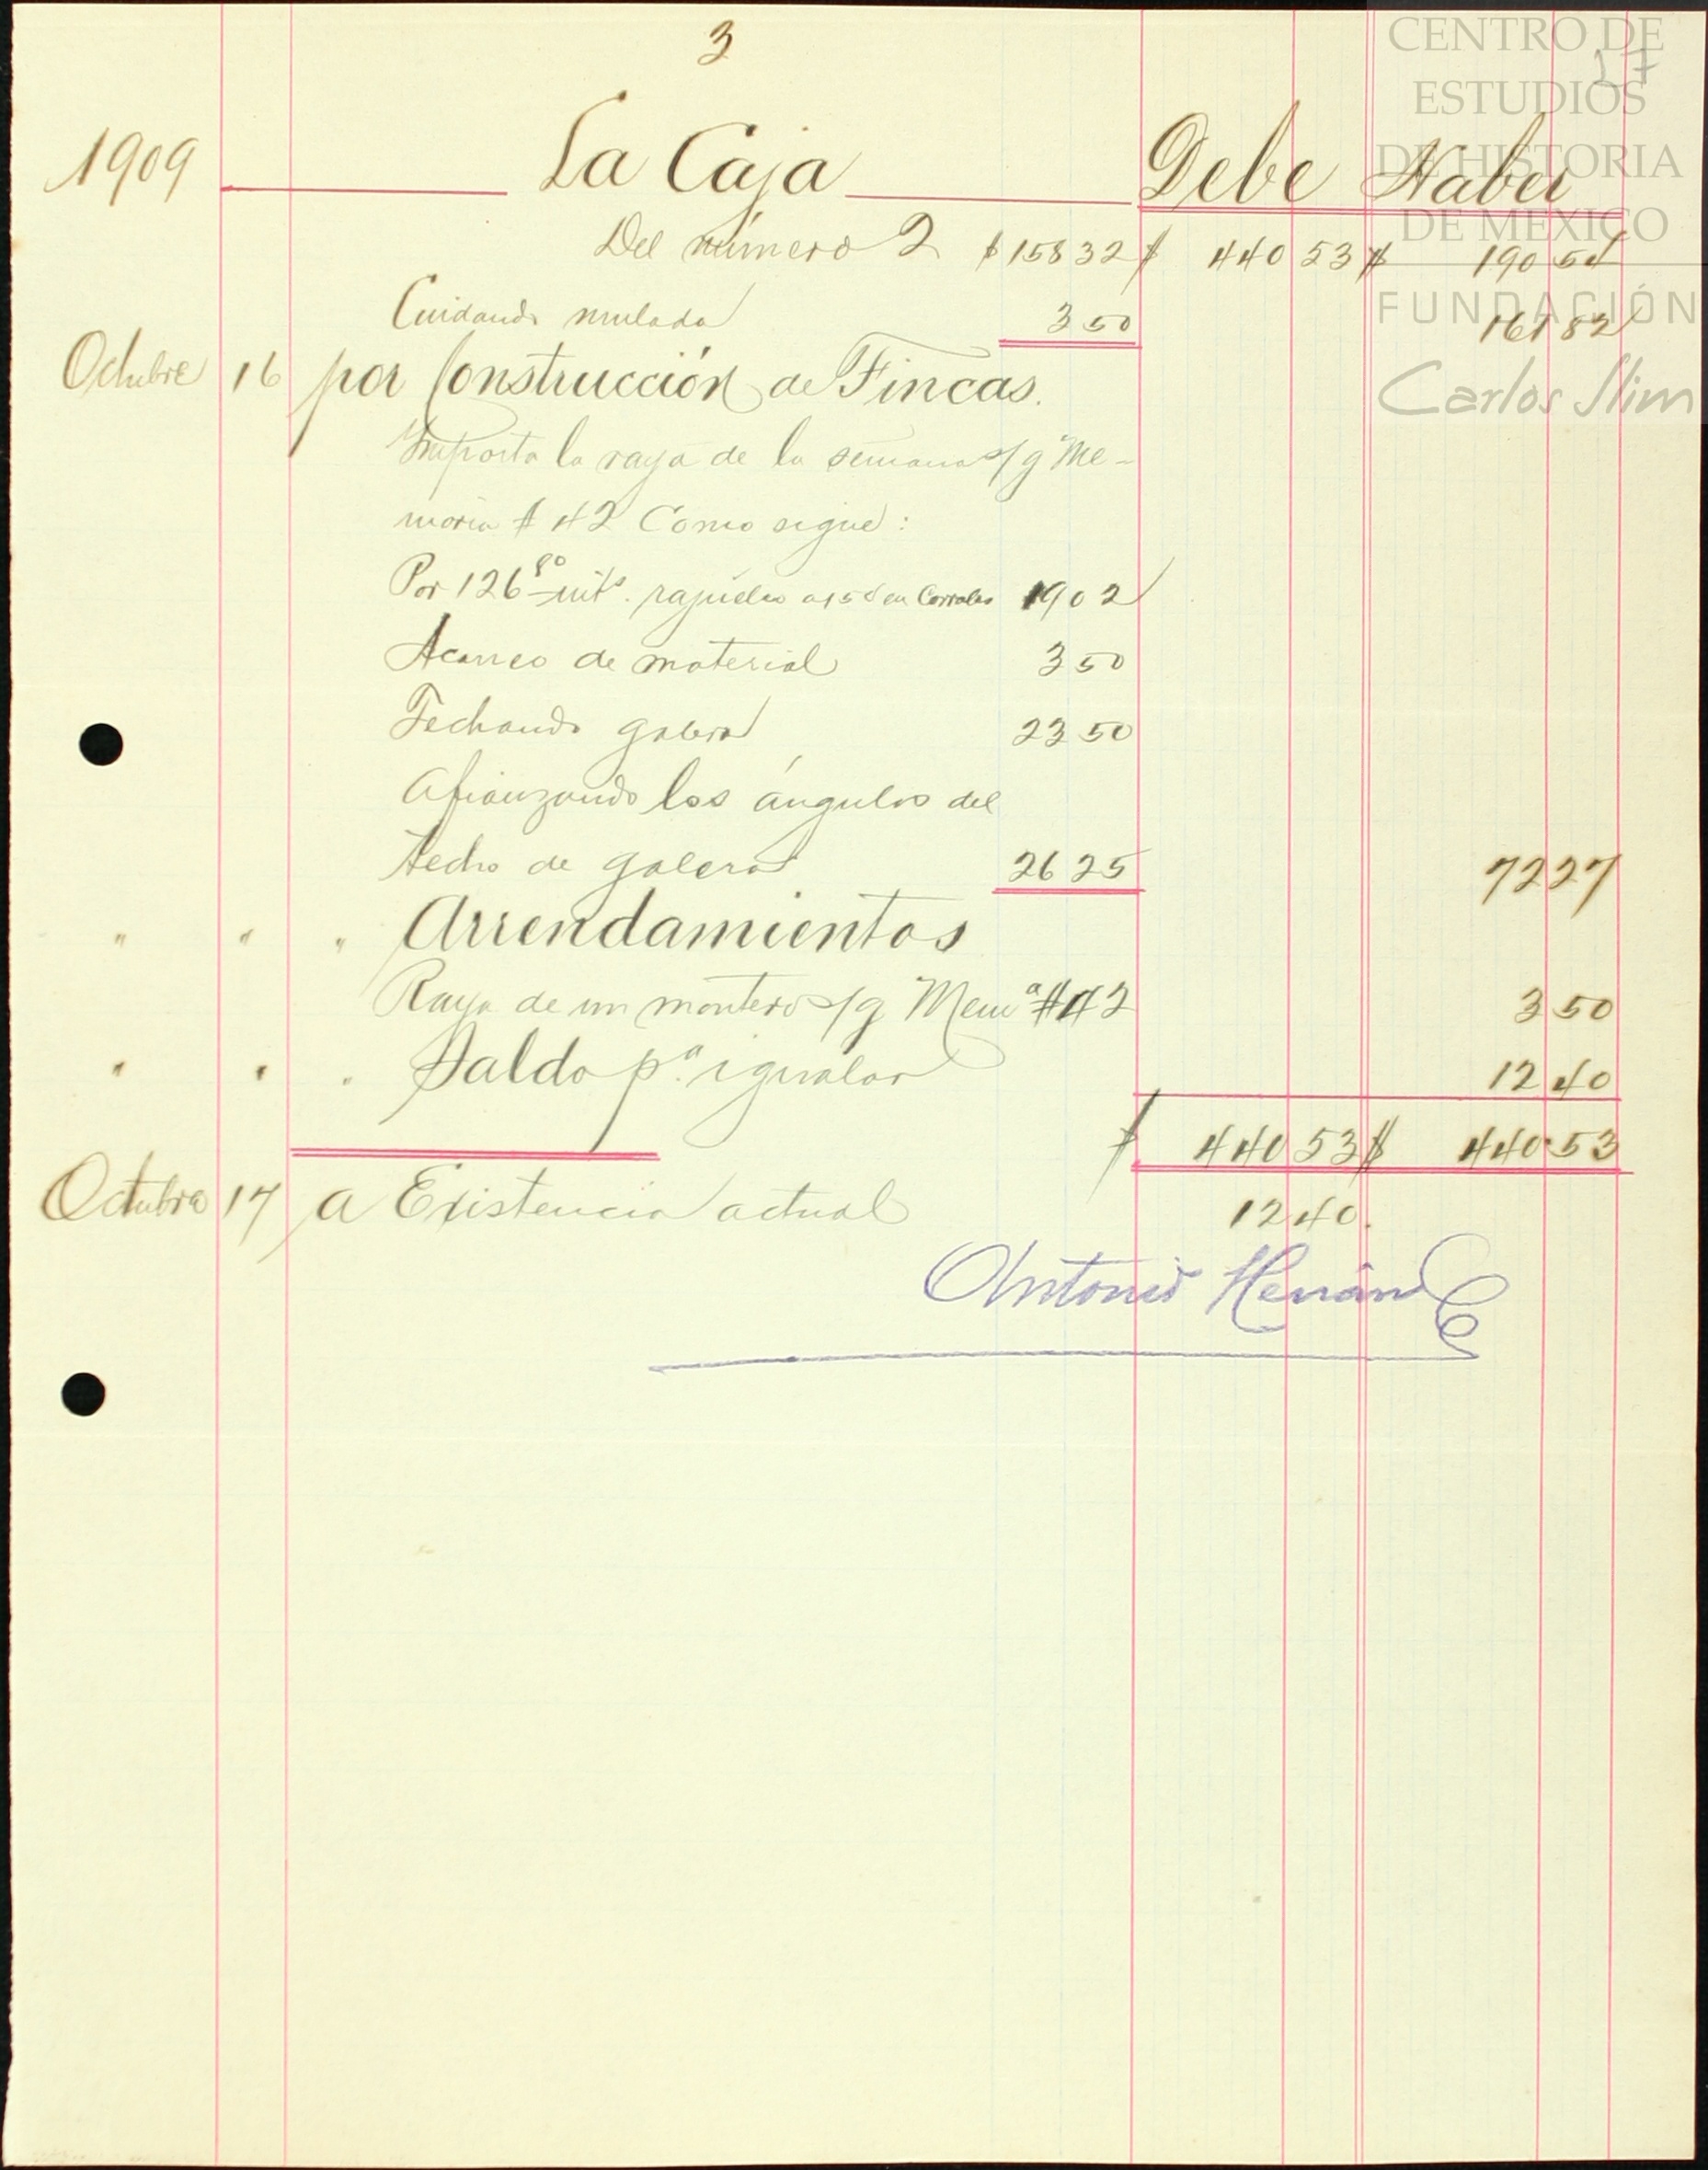 3
17
1909 La Caja Debe Haber
Del número 2 $ 158 32 $ 440 53 $ 190 54
Cuidando mulada 3 50 161 82
Octubre 16 por Construcción de Fincas.
Importa la raya de la semana s/g Me-
moria # 42 Como sigue:
Por 126 80 mts. rajueleo a 15 ¢ en Corrales 19 02
Acarreo de material 3 50
Techando galera 23 50
Afianzando los ángulos del
techo de galera 26 25 72 27
" " " Arrendamientos
Raya de un montero s/g Memª # 42 3 50
" " " Saldo pª. igualar 12 40
$ 440 53 $ 440 53
Octubre 17 a Existencia actual 12 40.
Antonio Hernández
CENTRO DE
ESTUDIOS
DE HISTORIA
DE MÉXICO
FUNDACIÓN
Carlos Slim